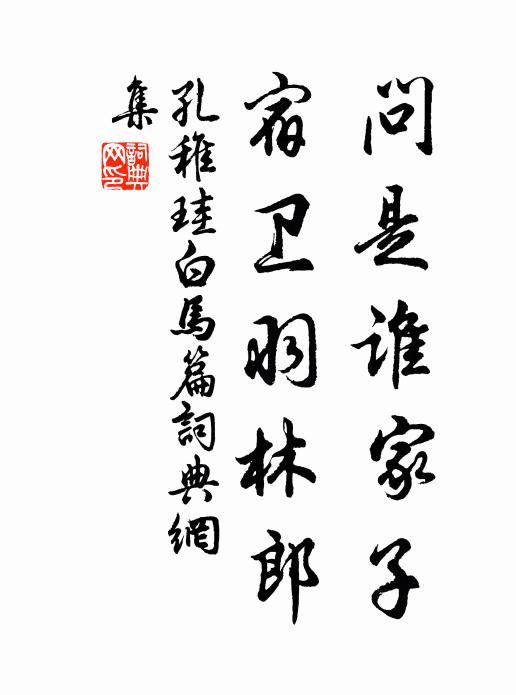 问是谁家子
宿卫羽林郎
孔稚珪白馬篇詞典網
集
詞典
网印